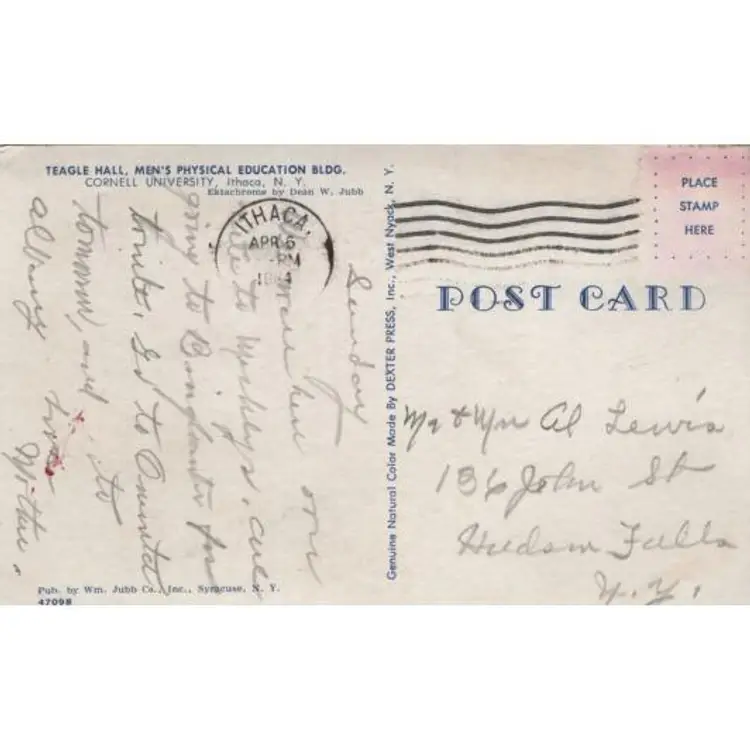 TEAGLE HALL, MEN'S PHYSICAL EDUCATION BLDG.
CORNELL UNIVERSITY, Ithaca, N. Y.
Ektachrome by Dean W. Jubb
ITHACA,
APR 6
PM
Sunday
here
to
going to for
tonite, go to Oneonta
tomorrow, and to
albany
Mother.
Pub. by Wm. Jubb Co., Inc., Syracuse, N. Y.
47098
Genuine Natural Color Made By DEXTER PRESS, Inc., West Nyack, N. Y.
PLACE
STAMP
HERE
POST CARD
Mr & Mrs Al Lewis
136 John St
Hudson Falls
N.Y.